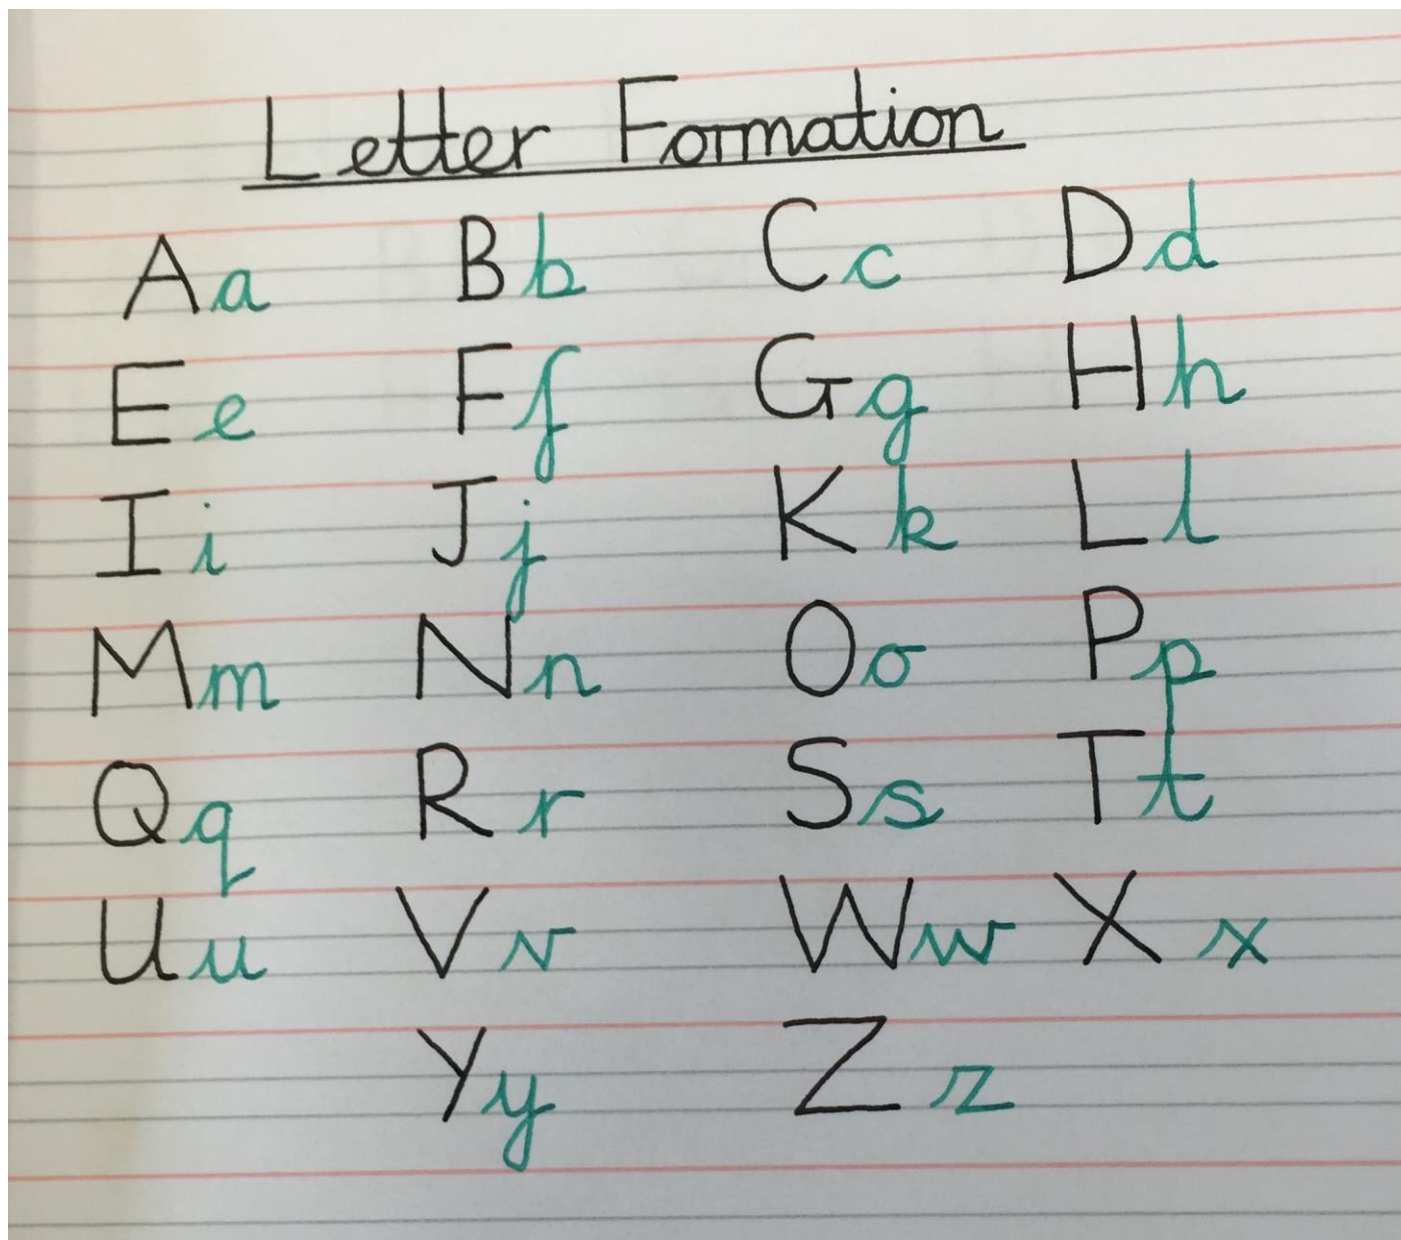 Letter Formation
Aa Bb Cc Dd
Ee Ff Gg Hh
Ii Jj Kk Ll
Mm Nn Oo Pp
Qq Rr Ss Tt
Uu Vv Ww Xx
Yy Zz